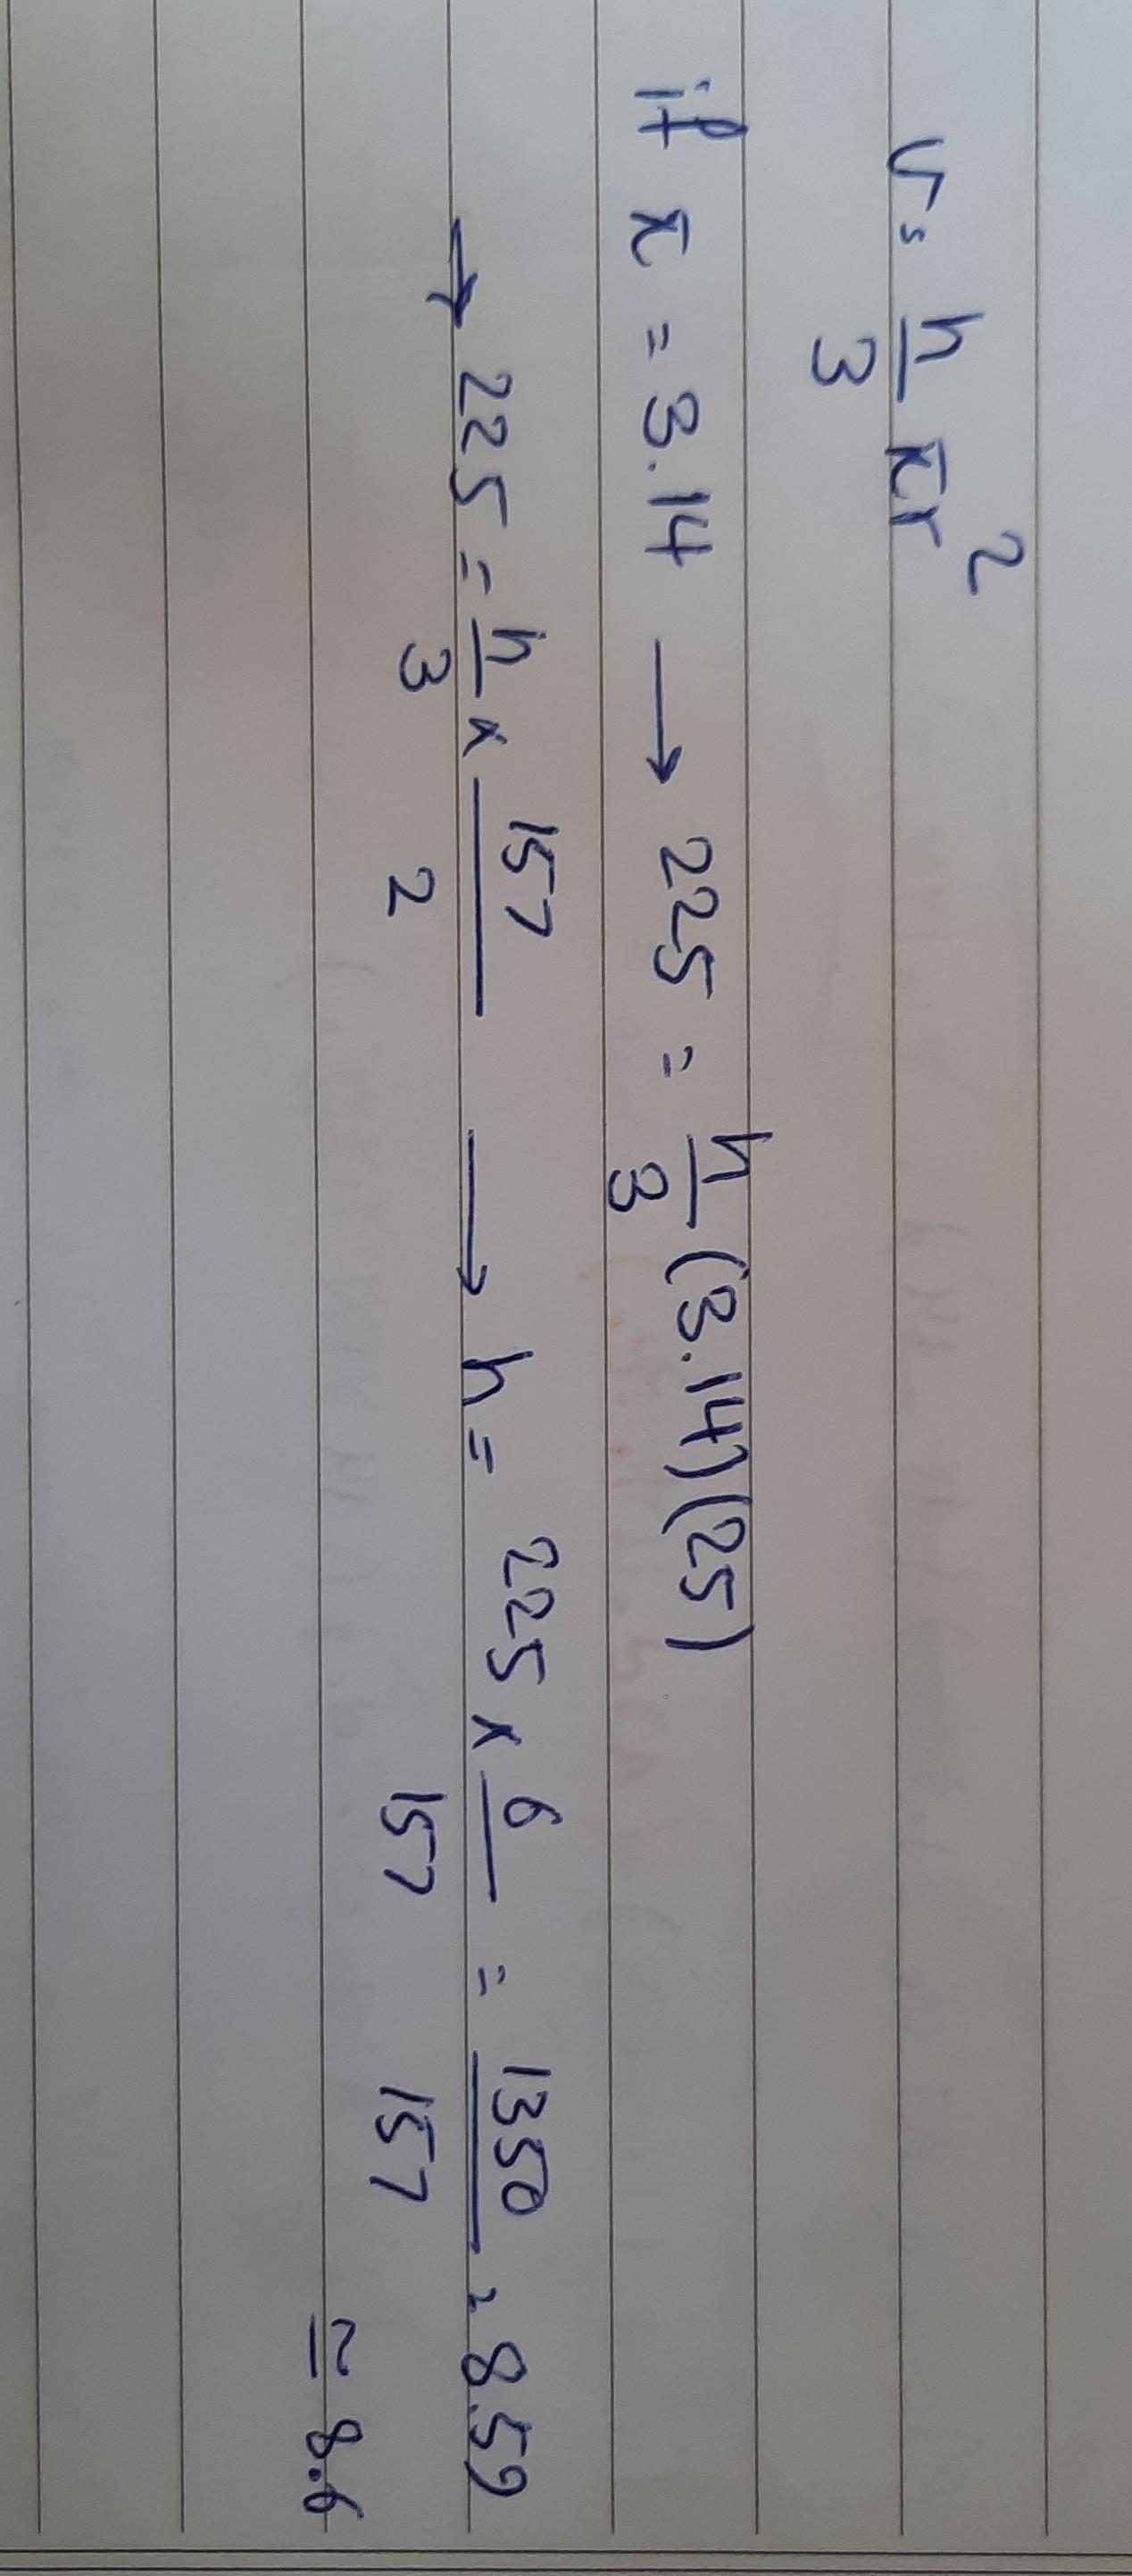 V = h/3 πr²
if π = 3.14 → 225 = h/3 (3.14)(25)
→ 225 = h/3 x 157/2 → h = 225 x 6/157 = 1350/157 = 8.59
≃ 8.6